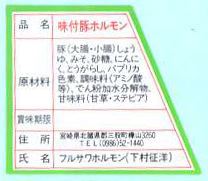 品名 味付豚ホルモン
原材料 豚(大腸・小腸)しょう
ゆ、みそ、砂糖、にんに
く、とうがらし、パプリカ
色素、調味料(アミノ酸
等)、でん粉加水分解物、
甘味料(甘草・ステビア)
賞味期限
住所 宮崎県北諸県郡三股町樺山3250
TEL(0986)52-1440
氏名 フルサワホルモン(下村征洋)